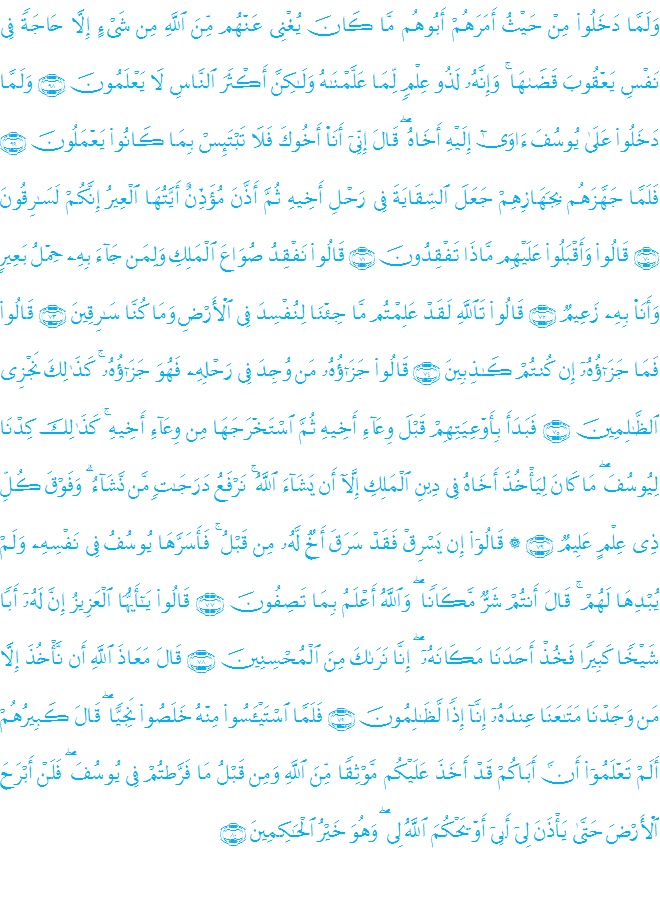 وَلَمَّا دَخَلُوا۟ مِنْ حَيْثُ أَمَرَهُمْ أَبُوهُم مَّا كَانَ يُغْنِى عَنْهُم مِّنَ ٱللَّهِ مِن شَىْءٍ إِلَّا حَاجَةً فِى
نَفْسِ يَعْقُوبَ قَضَىٰهَا ۚ وَإِنَّهُۥ لَذُو عِلْمٍ لِّمَا عَلَّمْنَـٰهُ وَلَـٰكِنَّ أَكْثَرَ ٱلنَّاسِ لَا يَعْلَمُونَ ﴿٦٨﴾ وَلَمَّا
دَخَلُوا۟ عَلَىٰ يُوسُفَ ءَاوَىٰٓ إِلَيْهِ أَخَاهُ ۖ قَالَ إِنِّىٓ أَنَا۠ أَخُوكَ فَلَا تَبْتَئِسْ بِمَا كَانُوا۟ يَعْمَلُونَ ﴿٦٩﴾
فَلَمَّا جَهَّزَهُم بِجَهَازِهِمْ جَعَلَ ٱلسِّقَايَةَ فِى رَحْلِ أَخِيهِ ثُمَّ أَذَّنَ مُؤَذِّنٌ أَيَّتُهَا ٱلْعِيرُ إِنَّكُمْ لَسَـٰرِقُونَ
﴿٧٠﴾ قَالُوا۟ وَأَقْبَلُوا۟ عَلَيْهِم مَّاذَا تَفْقِدُونَ ﴿٧١﴾ قَالُوا۟ نَفْقِدُ صُوَاعَ ٱلْمَلِكِ وَلِمَن جَآءَ بِهِۦ حِمْلُ بَعِيرٍ
وَأَنَا۠ بِهِۦ زَعِيمٌ ﴿٧٢﴾ قَالُوا۟ تَٱللَّهِ لَقَدْ عَلِمْتُم مَّا جِئْنَا لِنُفْسِدَ فِى ٱلْأَرْضِ وَمَا كُنَّا سَـٰرِقِينَ ﴿٧٣﴾ قَالُوا۟
فَمَا جَزَٰٓؤُهُۥٓ إِن كُنتُمْ كَـٰذِبِينَ ﴿٧٤﴾ قَالُوا۟ جَزَٰٓؤُهُۥ مَن وُجِدَ فِى رَحْلِهِۦ فَهُوَ جَزَٰٓؤُهُۥ ۚ كَذَٰلِكَ نَجْزِى
ٱلظَّـٰلِمِينَ ﴿٧٥﴾ فَبَدَأَ بِأَوْعِيَتِهِمْ قَبْلَ وِعَآءِ أَخِيهِ ثُمَّ ٱسْتَخْرَجَهَا مِن وِعَآءِ أَخِيهِ ۚ كَذَٰلِكَ كِدْنَا
لِيُوسُفَ ۖ مَا كَانَ لِيَأْخُذَ أَخَاهُ فِى دِينِ ٱلْمَلِكِ إِلَّآ أَن يَشَآءَ ٱللَّهُ ۚ نَرْفَعُ دَرَجَـٰتٍ مَّن نَّشَآءُ ۗ وَفَوْقَ كُلِّ
ذِى عِلْمٍ عَلِيمٌ ﴿٧٦﴾ ۞ قَالُوٓا۟ إِن يَسْرِقْ فَقَدْ سَرَقَ أَخٌ لَّهُۥ مِن قَبْلُ ۚ فَأَسَرَّهَا يُوسُفُ فِى نَفْسِهِۦ وَلَمْ
يُبْدِهَا لَهُمْ ۚ قَالَ أَنتُمْ شَرٌّ مَّكَانًا ۖ وَٱللَّهُ أَعْلَمُ بِمَا تَصِفُونَ ﴿٧٧﴾ قَالُوا۟ يَـٰٓأَيُّهَا ٱلْعَزِيزُ إِنَّ لَهُۥٓ أَبًا
شَيْخًا كَبِيرًا فَخُذْ أَحَدَنَا مَكَانَهُۥٓ ۖ إِنَّا نَرَىٰكَ مِنَ ٱلْمُحْسِنِينَ ﴿٧٨﴾ قَالَ مَعَاذَ ٱللَّهِ أَن نَّأْخُذَ إِلَّا
مَن وَجَدْنَا مَتَـٰعَنَا عِندَهُۥٓ إِنَّآ إِذًا لَّظَـٰلِمُونَ ﴿٧٩﴾ فَلَمَّا ٱسْتَيْـَٔسُوا۟ مِنْهُ خَلَصُوا۟ نَجِيًّا ۖ قَالَ كَبِيرُهُمْ
أَلَمْ تَعْلَمُوٓا۟ أَنَّ أَبَاكُمْ قَدْ أَخَذَ عَلَيْكُم مَّوْثِقًا مِّنَ ٱللَّهِ وَمِن قَبْلُ مَا فَرَّطتُمْ فِى يُوسُفَ ۖ فَلَنْ أَبْرَحَ
ٱلْأَرْضَ حَتَّىٰ يَأْذَنَ لِىٓ أَبِىٓ أَوْ يَحْكُمَ ٱللَّهُ لِى ۖ وَهُوَ خَيْرُ ٱلْحَـٰكِمِينَ ﴿٨٠﴾